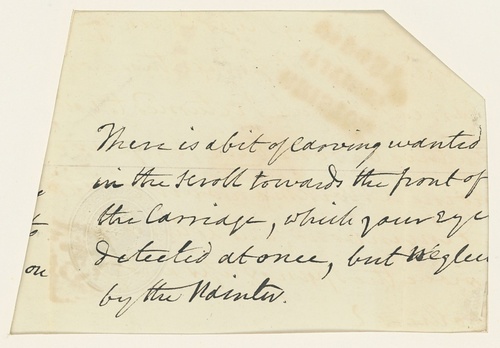 There is a bit of Carving wanted
in the scroll towards the front of
the Carriage, which your eye
detected at once, but neglec
by the Painter.
ou